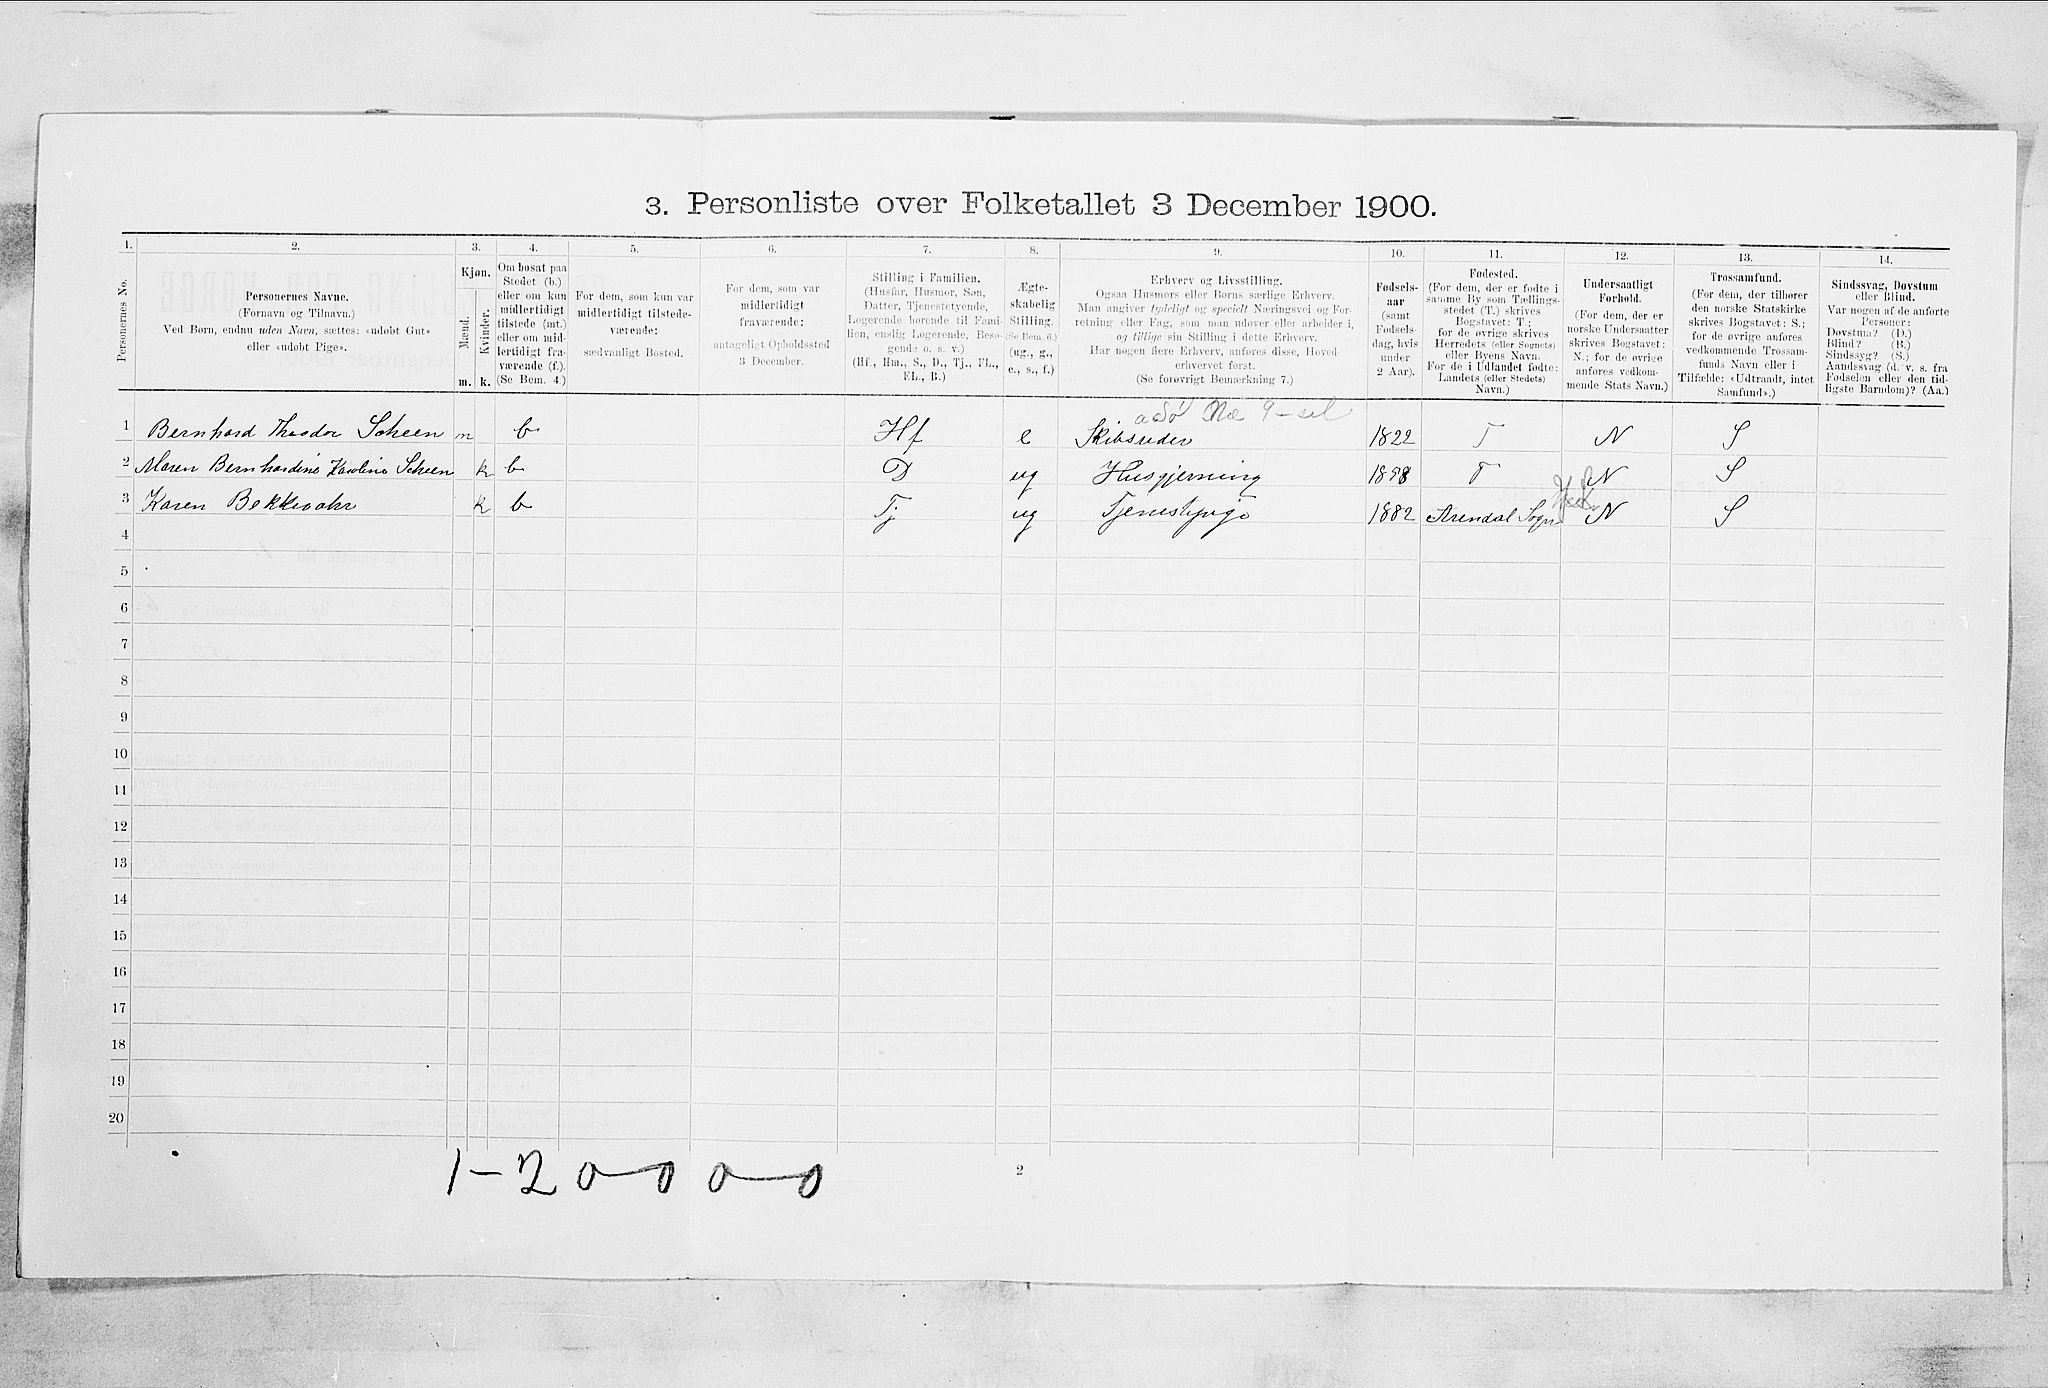 3. Personliste over Folketallet 3 December 1900.
1. 2. 3. 4. 5. 6. 7. 8. 9. 10. 11. 12. 13. 14.
Personernes No.
Personernes Navne.
(Fornavn og Tilnavn.)
Ved Børn, endnu uden Navn, sættes: «udøbt Gut»
eller «udøbt Pige».
Kjøn.
Mænd.
Kvinder.
m. k.
Om bosat paa
Stedet (b.)
eller om kun
midlertidigt
tilstede (mt.)
eller om mid-
lertidigt fra-
værende (f.).
(Se Bem. 4.)
For dem, som kun var
midlertidigt tilstede-
værende:
sædvanligt Bosted.
For dem, som var
midlertidigt
fraværende:
antageligt Opholdssted
3 December.
Stilling i Familien.
(Husfar, Husmor, Søn,
Datter, Tjenestetyende,
Logerende hørende til Fami-
lien, enslig Logerende, Besø-
gende o. s. v.)
(Hf., Hm., S., D., Tj., FL.,
EL., B.)
Ægte-
skabelig
Stilling.
(Se Bem. 6.)
(ug., g.,
e., s., f.)
Erhverv og Livsstilling.
Ogsaa Husmors eller Børns særlige Erhverv.
Man angiver tydeligt og specielt Næringsvei og For-
retning eller Fag, som man udøver eller arbeider i,
og tillige sin Stilling i dette Erhverv.
Har nogen flere Erhverv, anføres disse, Hoved-
erhvervet først.
(Se forøvrigt Bemærkning 7.)
Fødsels-
aar
(samt
Fødsels-
dag, hvis
under
2 Aar).
Fødested.
(For dem, der er fødte i
samme By som Tællings-
stedet (T.) skrives
Bogstavet: T.;
for de øvrige skrives
Herredets (eller Sognets)
eller Byens Navn.
For de i Udlandet fødte:
Landets (eller Stedets)
Navn.)
Undersaatligt
Forhold.
(For dem, der er
norske Undersaatter
skrives Bogstavet:
N.; for de øvrige
anføres vedkom-
mende Stats Navn.)
Trossamfund.
(For dem, der tilhører
den norske Statskirke
skrives Bogstavet: S.;
for de øvrige anføres
vedkommende Trossam-
funds Navn eller i
Tilfælde: «Udtraadt, intet
Samfund».)
Sindssvag, Døvstum
eller Blind.
Var nogen af de anførte
Personer:
Døvstum? (D.)
Blind? (B.)
Sindssyg? (S.)
Aandssvag (d. v. s. fra
Fødselen eller den tid-
ligste Barndom)? (Aa.)
1 Bernhard Theodor Scheen m b Hf e Skibsreder 1822 T N S
2 Maren Bernhardine Karoline Scheen k b D ug Husgjerning T N S
3 Karen k b Tj ug Tjenestepige 1882 Arendal Sogn N S
4
5
6
7
8
9
10
11
12
13
14
15
16
17
18
19
20
1-2 0-0 0-0
2